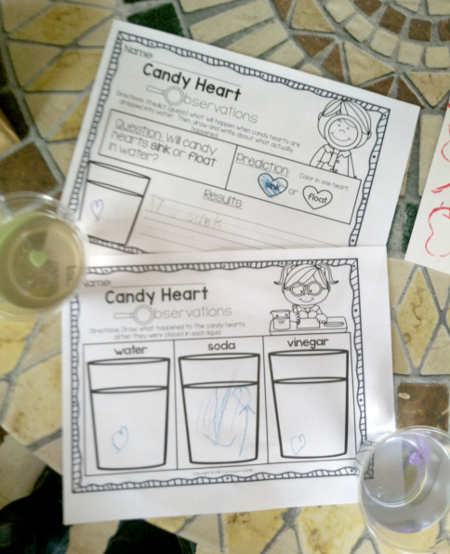 Name
Candy Heart
Observations
Directions: Predict (guess) what will happen when candy hearts are
dropped into water. Then, draw and write about what actually
happened.
Question: Will candy
hearts sink or float
in water?
Prediction:
Color in one heart
sink
or
float
Results
sink
Name
Candy Heart
Observations
Directions: Draw what happened to the candy hearts
after they were placed in each liquid.
water
soda
vinegar